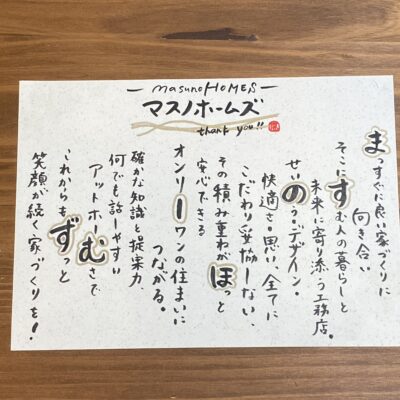 masunoHOMES
マスノホームズ
thank you!!
まっすぐに良い家づくりに
向き合い
そこにすむ人の暮らしと
未来に寄り添う工務店。
せいのう・デザイン・
快適さ・思い、全てに
こだわり妥協しない、
その積み重ねがほっと
安心できる
オンリーワンの住まいに
つながる。
確かな知識と提案力、
何でも話しやすい
アットホームさで
これからもずむっと
笑顔が続く家づくりを!